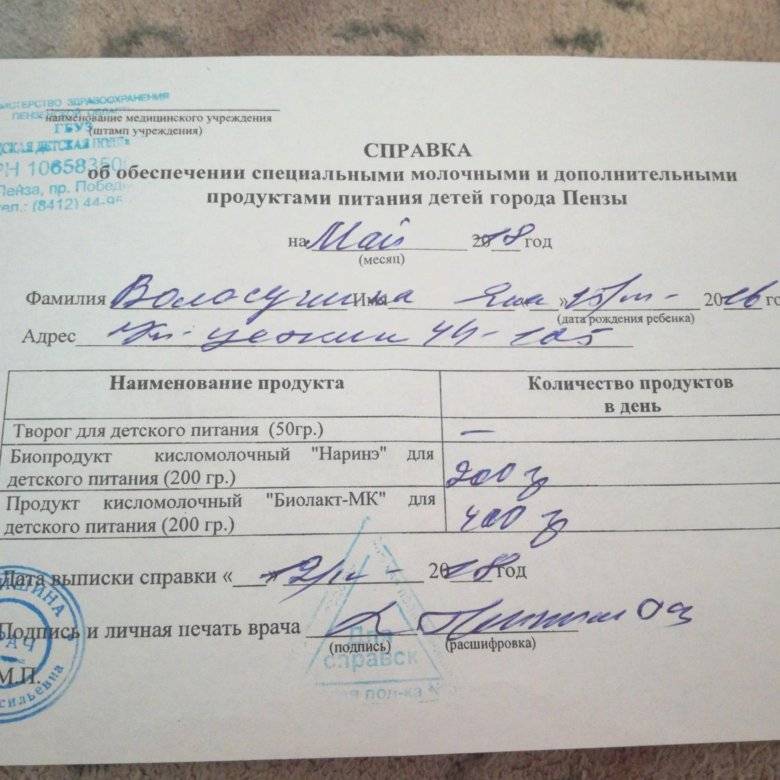 МИНИСТЕРСТВО ЗДРАВООХРАНЕНИЯ
ПЕНЗЕНСКОЙ ОБЛАСТИ
наименование медицинского учреждения
ГБУЗ
(штамп учреждения)
ДЕТСКАЯ
пр. Побед
тел.: (8412) 44-95
СПРАВКА
об обеспечении специальными молочными и дополнительными
продуктами питания детей города Пензы
на Май 2018 год
(месяц)
Фамилия Имя Яна » 2016 го
(дата рождения ребенка)
Адрес
Наименование продукта Количество продуктов
в день
Творог для детского питания (50гр.) —
Биопродукт кисломолочный "Наринэ" для
детского питания (200 гр.) 200 г
Продукт кисломолочный "Биолакт-МК" для
детского питания (200 гр.) 400 г
Дата выписки справки « 2018 год
Подпись и личная печать врача
(подпись) (расшифровка)
Для
справок
М.П.
ВРАЧ